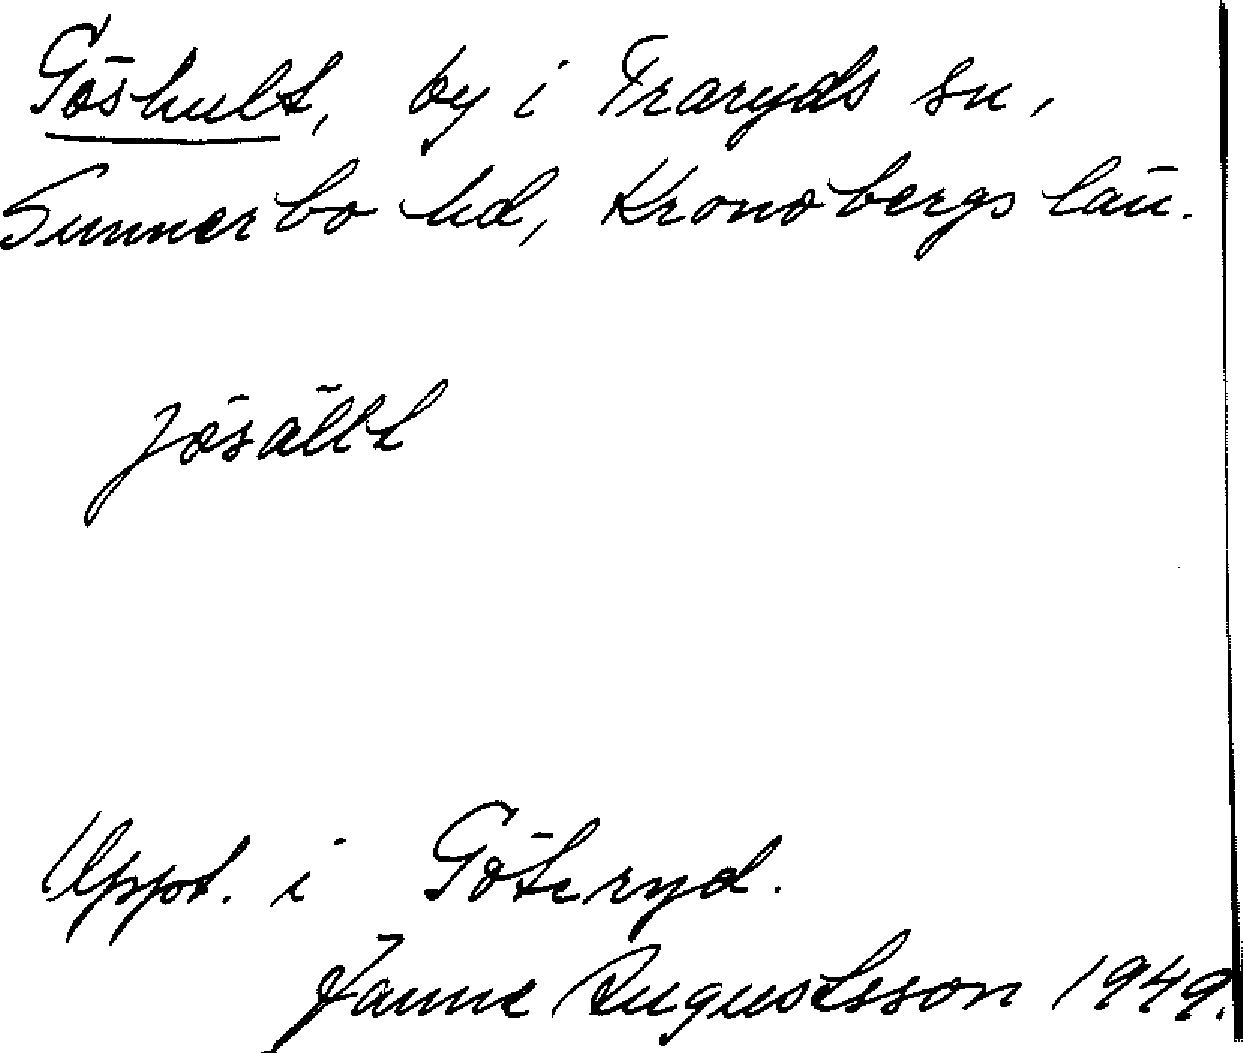 Göshult, by i Traryds sn,
Sunnerbo hd, Kronobergs län.
jösällt
Uppt. i Göteryd.
Janne Augustsson 1949.